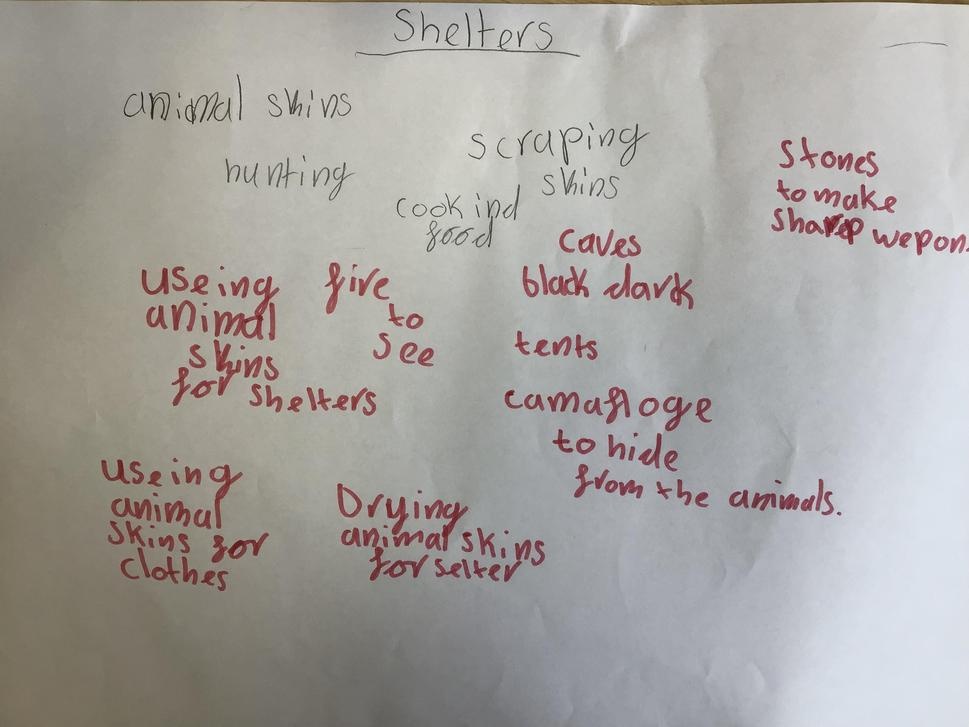 Shelters
animal skins
hunting
scraping
skins
cookind
food
Stones
to make
sharp wepon
caves
black dark
useing
animal
skins
for shelters
fire
to
see
tents
camafloge
to hide
from the animals.
useing
animal
skins for
clothes
Drying
animal skins
for selter